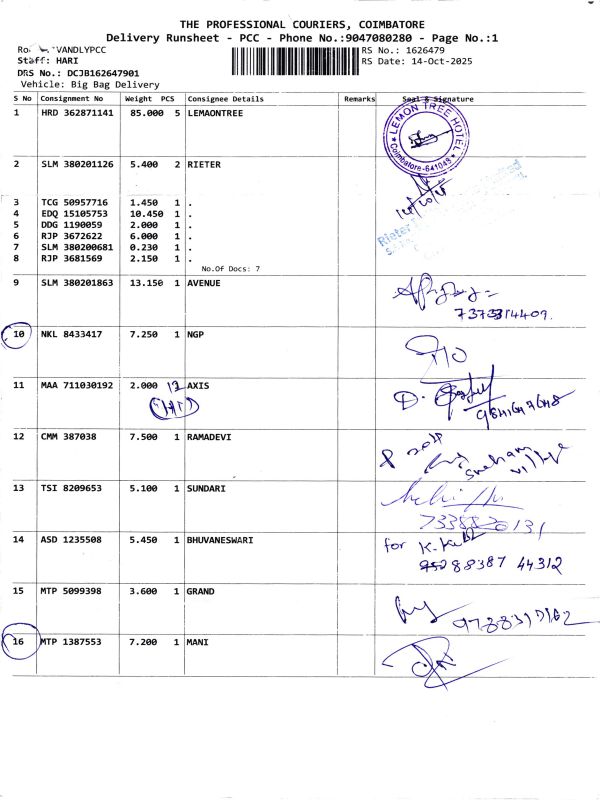 THE PROFESSIONAL COURIERS, COIMBATORE
Delivery Runsheet - PCC - Phone No.:9047080280 - Page No.:1
VANDLYPCC
RS No.: 1626479
Staff: HARI
RS Date: 14-Oct-2025
DRS No.: DCJB162647901
Vehicle: Big Bag Delivery
S No Consignment No Weight PCS Consignee Details Remarks Seal & Signature
1 HRD 362871141 85.000 5 LEMAONTREE
LEMON TREE HOTEL
Coimbatore-641048
2 SLM 380201126 5.400 2 RIETER
3 TCG 50957716 1.450 1 .
4 EDQ 15105753 10.450 1 .
5 DDG 1190059 2.000 1 .
6 RJP 3672622 6.000 1 .
7 SLM 380200681 0.230 1 .
8 RJP 3681569 2.150 1 .
No.Of Docs: 7
Rieter
9 SLM 380201863 13.150 1 AVENUE
10 NKL 8433417 7.250 1 NGP
11 MAA 711030192 2.000 AXIS
D.
12 CMM 387038 7.500 1 RAMADEVI
13 TSI 8209653 5.100 1 SUNDARI
14 ASD 1235508 5.450 1 BHUVANESWARI
for
88387 44312
15 MTP 5099398 3.600 1 GRAND
16 MTP 1387553 7.200 1 MANI